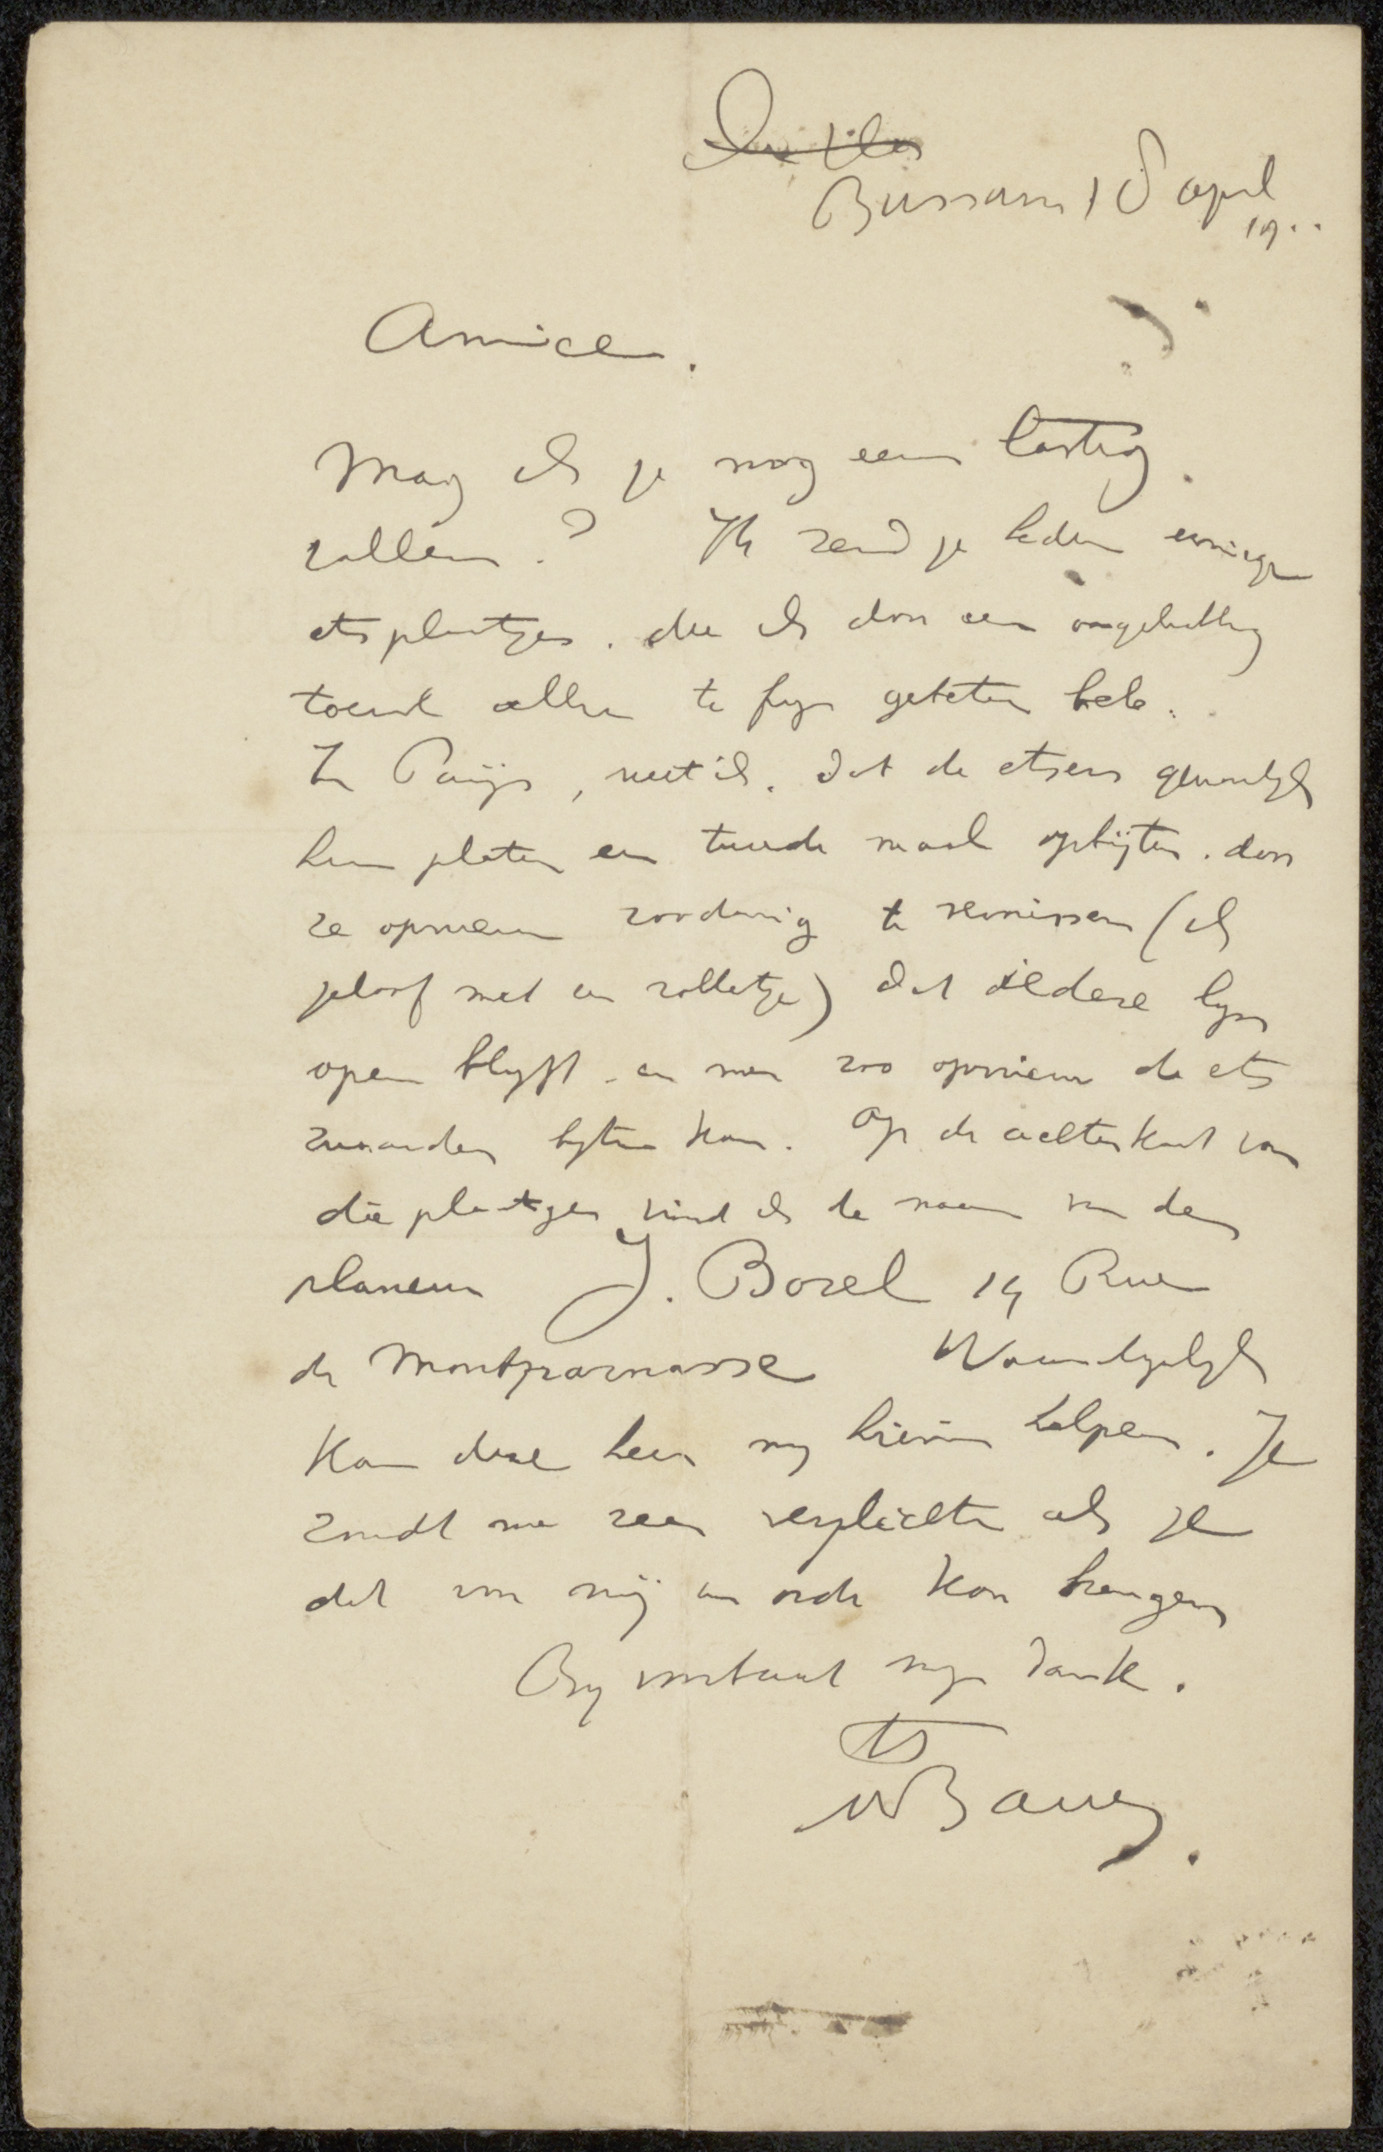 Bussum 18 april
19..
Amice.
Mag ik je nog eens lastig
vallen.? Ik zend je heden eenige
etsplaatjes. die ik door een ongelukkig
toeval allen te fijn gebeten heb.
In Parijs, weet ik. dat de etsers gewoonlijk
hun platen een tweede maal opbijten. door
ze opnieuw zoodanig te vernissen (ik
geloof met een rolletje) dat iedere lijn
open blijft. en men zoo opnieuw de ets
zwaarder bijten kan. Op de achterkant van
die plaatjes vind ik de naam van den
planeur J. Borel 14 Rue
de Montparnasse Waarschijnlijk
kan deze heer mij hierin helpen. Je
zoudt me zeer verplichten als je
dat voor mij in orde kon brengen
Bij voorbaat mijn dank.
tt
WBauer.